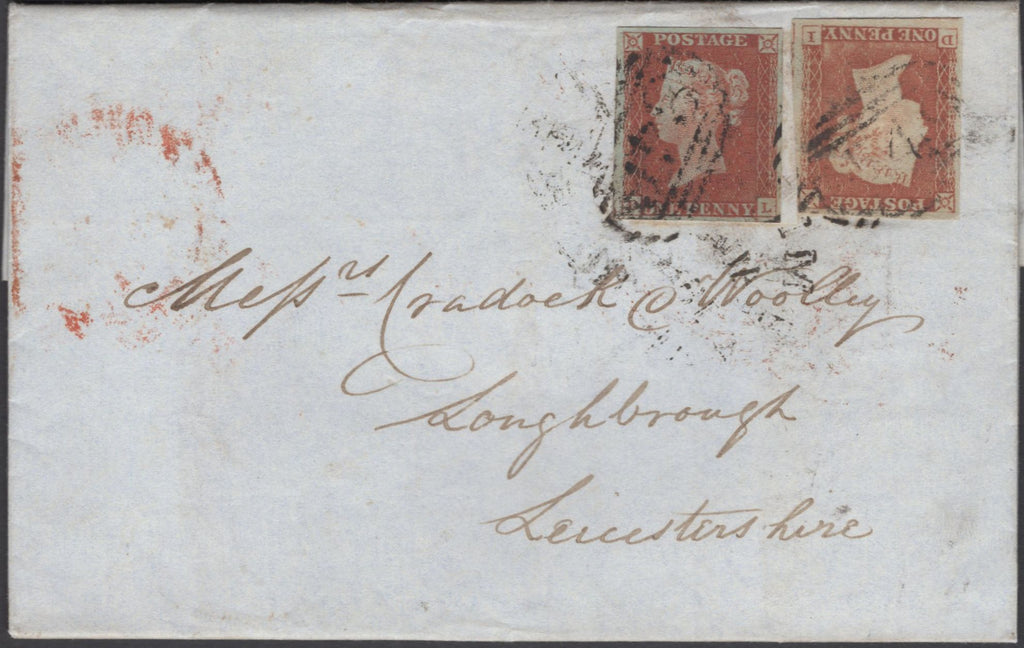 POSTAGE
ONE PENNY
L
POSTAGE
ONE PENNY
D I
Messrs Cradock & Woolley
Loughbrough
Leicestershire